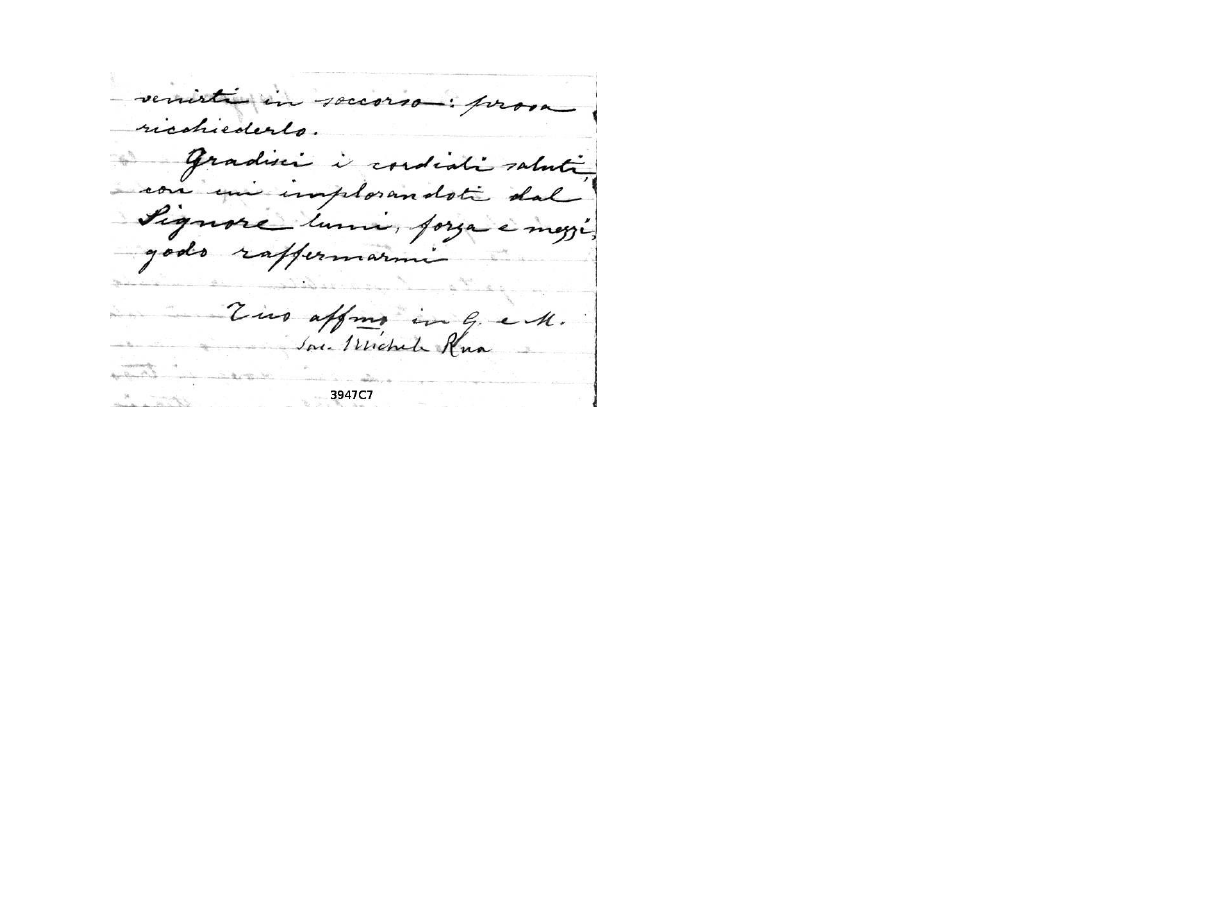 venirti in soccorso: prova
richiederlo.
Gradisci i cordiali saluti,
con cui implorandoti dal
Signore lumi, forza e mezzi,
godo raffermarmi
Tuo affmo in G. e M.
Sac. Michele Rua
3947C7